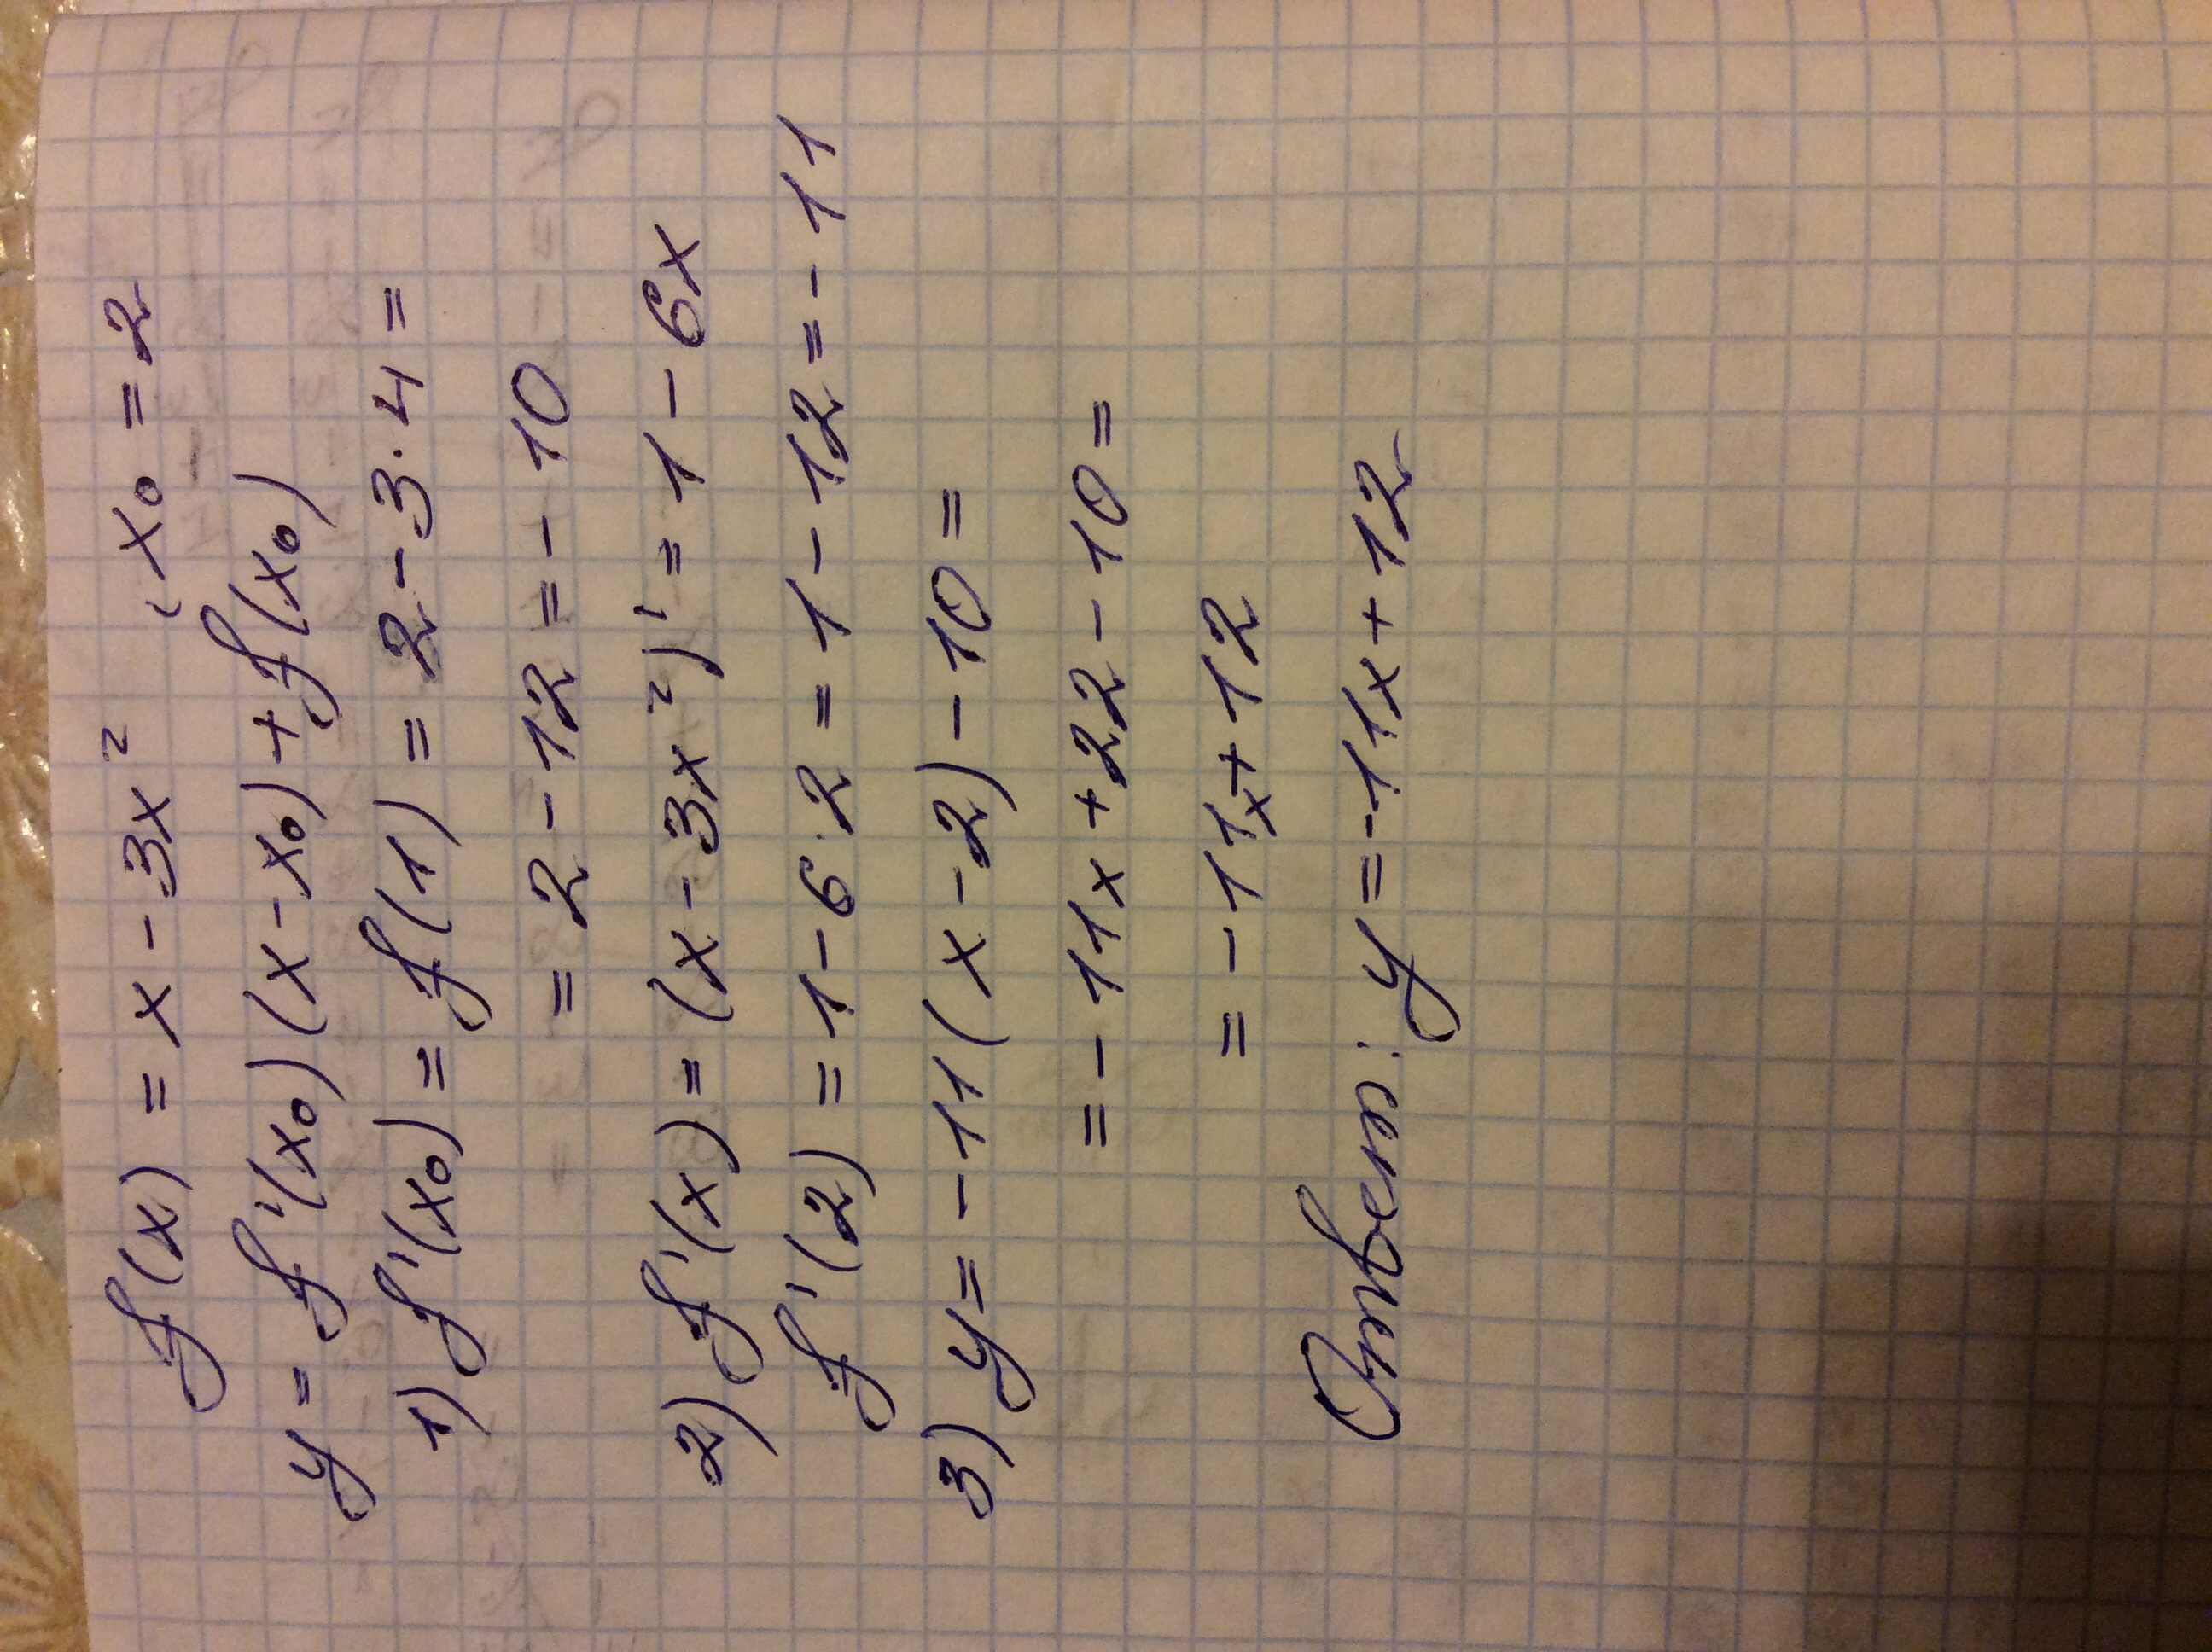 f(x) = x - 3x², x₀ = 2
y = f'(x₀)(x - x₀) + f(x₀)
1) f'(x₀) = f(1) = 2 - 3·4 =
= 2 - 12 = -10
2) f'(x) = (x - 3x²)' = 1 - 6x
f'(2) = 1 - 6·2 = 1 - 12 = -11
3) y = -11(x - 2) - 10 =
= -11x + 22 - 10 =
= -11x + 12
Ответ: y = -11x + 12